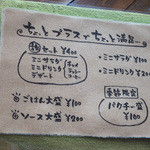 ちょっとプラスでちょっと満足
得セット ¥400
ミニサラダ
ミニドリンク
デザート
・ミニサラダ ¥100
・ミニドリンク ¥200
ごはん大盛 ¥100
ソース大盛 ¥200
季節限定
¥200